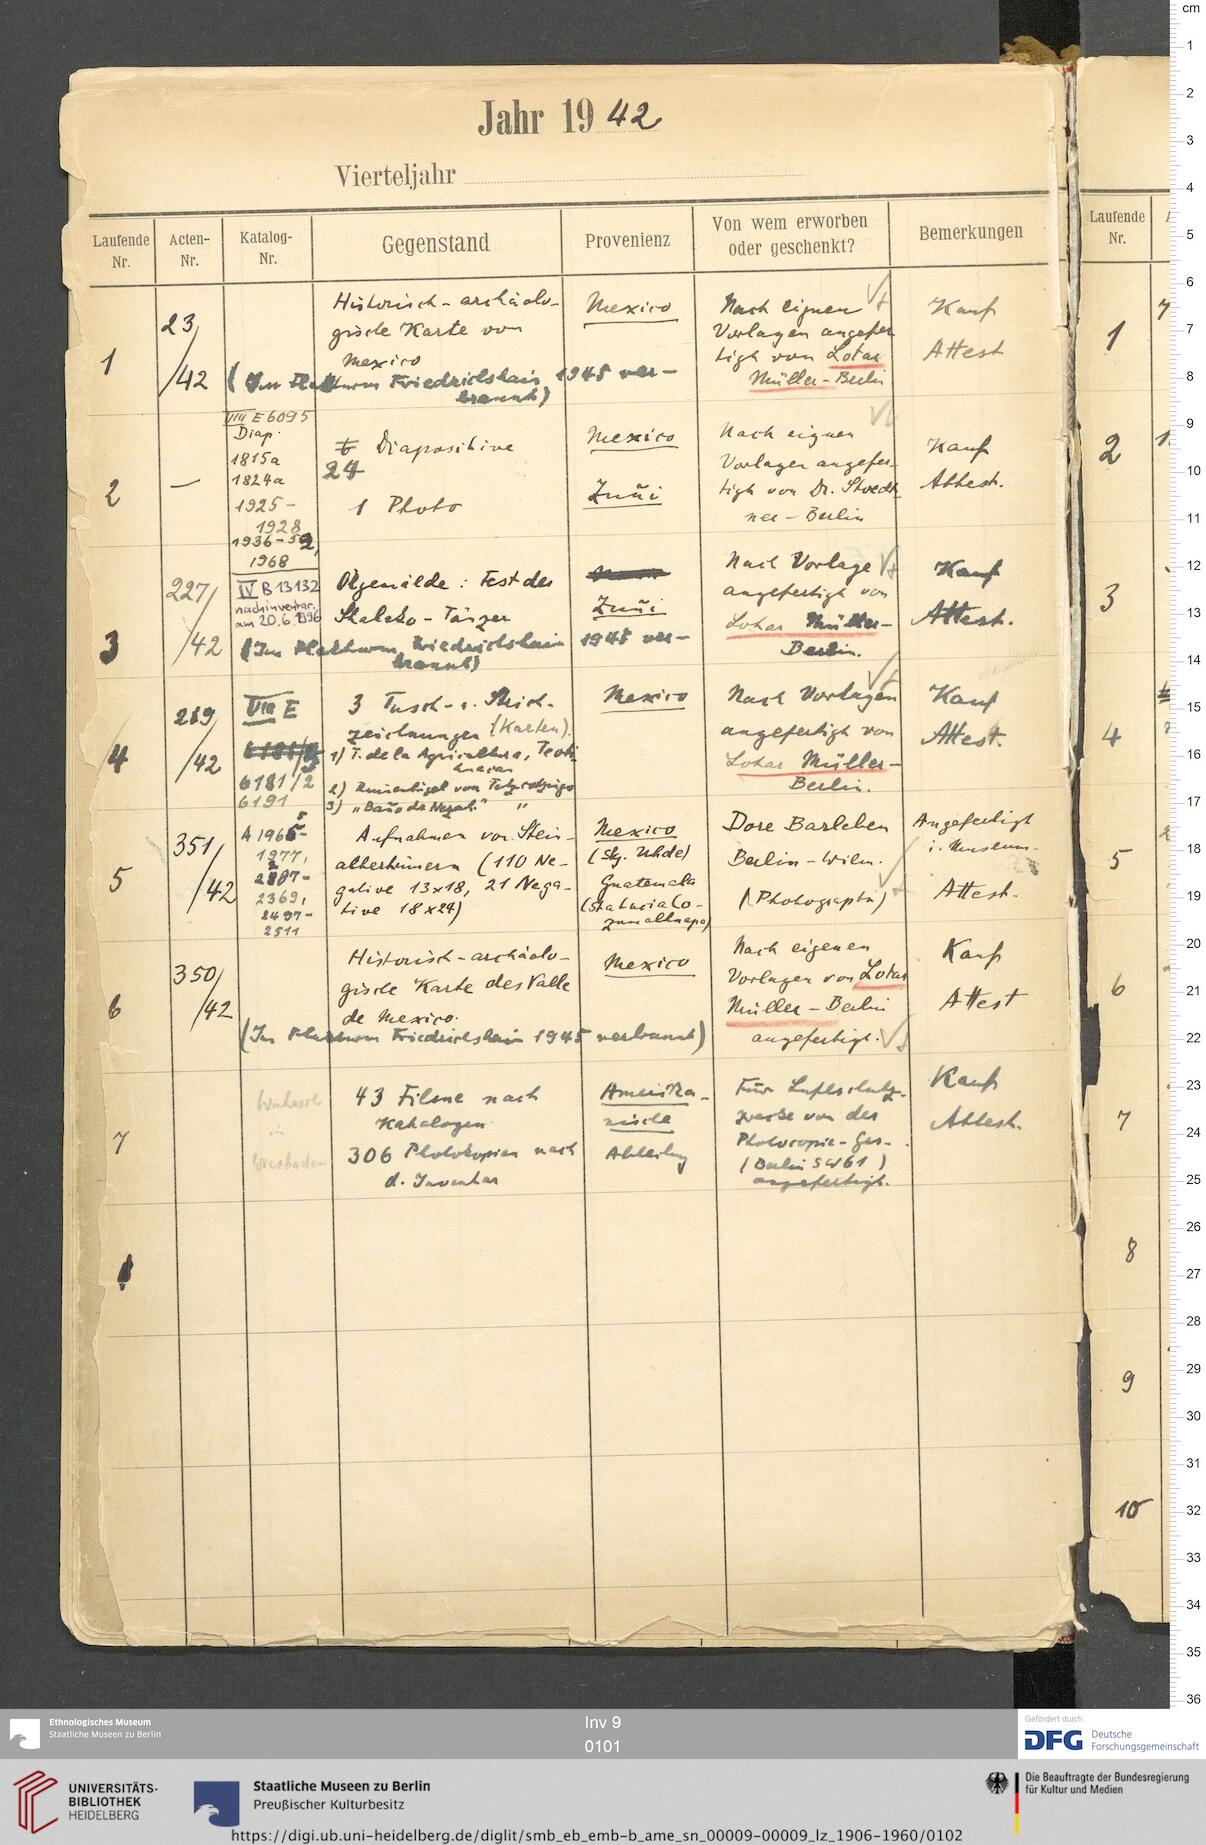 Jahr 19 42
Vierteljahr
Laufende Nr.
Acten-Nr.
Katalog-Nr.
Gegenstand
Provenienz
Von wem erworben oder geschenkt?
Bemerkungen
1
23/42
Historisch-archäolo-
gische Karte von
Mexico
(Im Flakturm Friedrichshain 1945 ver-
brannt)
Mexico
Nach eignen
Vorlagen angefer
tigt von Lotar
Müller-Berlin
Kauf
Attest
2
—
VIII E 6095
Diap.
1815a
1824a
1925-
1928
1936-52,
1968
24 Diapositive
1 Photo
Mexico
Zuñi
Nach eignen
Vorlagen angefer-
tigt von Dr. Stoedt
ner-Berlin
Kauf
Attest.
3
227/42
IV B 13132
nachinventar.
am 20.6.1996
Ölgemälde: Fest der
Shalako-Tänzer
(Im Flakturm Friedrichshain 1945 ver-
brannt)
Zuñi
Nach Vorlage
angefertigt von
Lotar Müller-
Berlin.
Kauf
Attest.
4
289/42
VIII E
6181/2
6191
3 Tusch- u. Strich-
zeichnungen (Karten).
1) T. de la Agricultura, Teoti
huacan
2) Ruinenhügel von Tetzcotzingo
3) „Baño de Nezah." "
Mexico
Nach Vorlagen
angefertigt von
Lotar Müller-
Berlin.
Kauf
Attest.
5
351/42
A 1965-
1977,
2287-
2369,
2497-
2511
Aufnahmen von Stein-
altertümern (110 Ne-
gative 13x18, 21 Nega-
tive 18x24)
Mexico
(Slg. Uhde)
Guatemala
(Sta Lucia Co-
zumalhuapa)
Dore Barleben
Berlin-Wilm.
(Photographin)
Angefertigt
i. Museum.
Attest.
6
350/42
Historisch-archäolo-
gische Karte des Valle
de Mexico.
(Im Flakturm Friedrichshain 1945 verbrannt)
Mexico
Nach eigenen
Vorlagen von Lotar
Müller-Berlin
angefertigt.
Kauf
Attest
7
in
Wiesbaden
43 Filme nach
Katalogen
306 Photokopien nach
d. Inventar
Amerika-
nische
Abteilung
Für Luftschutz-
zwecke von der
Photocopie-Ges.
(Berlin SW61)
angefertigt.
Kauf
Attest.
Laufende Nr.
1
2
3
4
5
6
7
8
9
10
cm
1
2
3
4
5
6
7
8
9
10
11
12
13
14
15
16
17
18
19
20
21
22
23
24
25
26
27
28
29
30
31
32
33
34
35
36
Ethnologisches Museum
Staatliche Museen zu Berlin
Inv 9
0101
Gefördert durch
DFG Deutsche
Forschungsgemeinschaft
UNIVERSITÄTS-
BIBLIOTHEK
HEIDELBERG
Staatliche Museen zu Berlin
Preußischer Kulturbesitz
Die Beauftragte der Bundesregierung
für Kultur und Medien
https://digi.ub.uni-heidelberg.de/diglit/smb_eb_emb-b_ame_sn_00009-00009_lz_1906-1960/0102